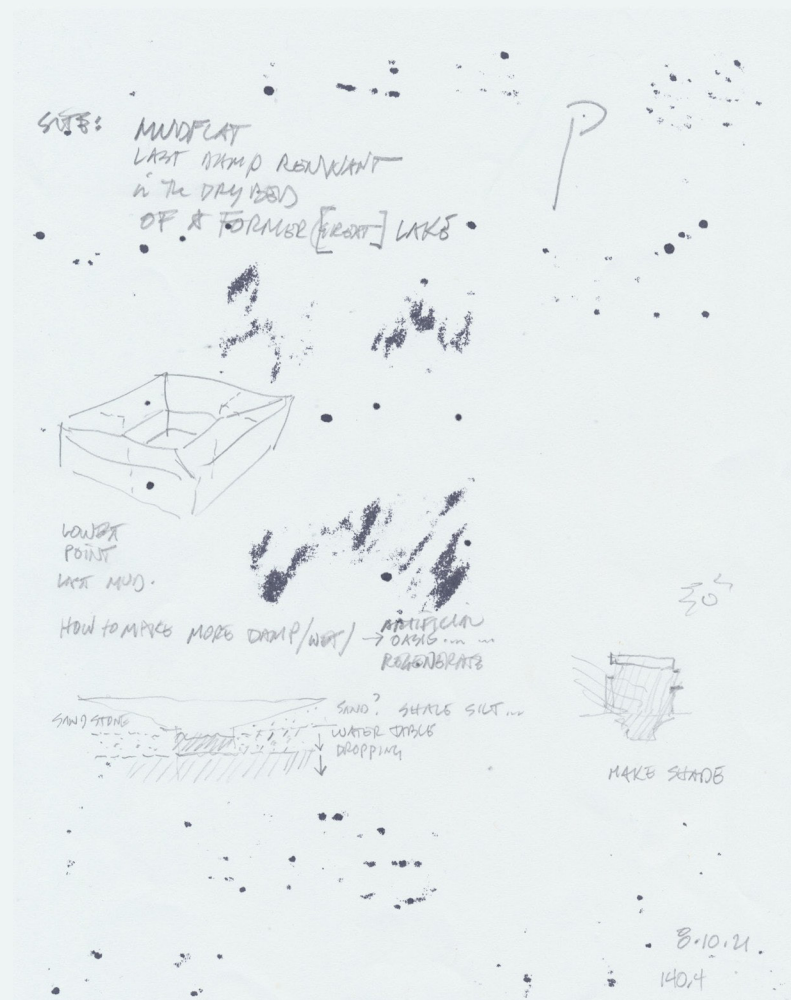 SITE:
P
MUDFLAT
LAST DAMP REMNANT
in The DRY BED
OF A FORMER [GREAT] LAKE
LOWEST
POINT
LAST MUD.
HOW to MAKE MORE DAMP/WET/ → ARTIFICIAL
OASIS... ...
REGENERATE
SANDSTONE
SAND? SHALE SILT...
WATER TABLE
DROPPING
MAKE SHADE
8.10.21.
140.4